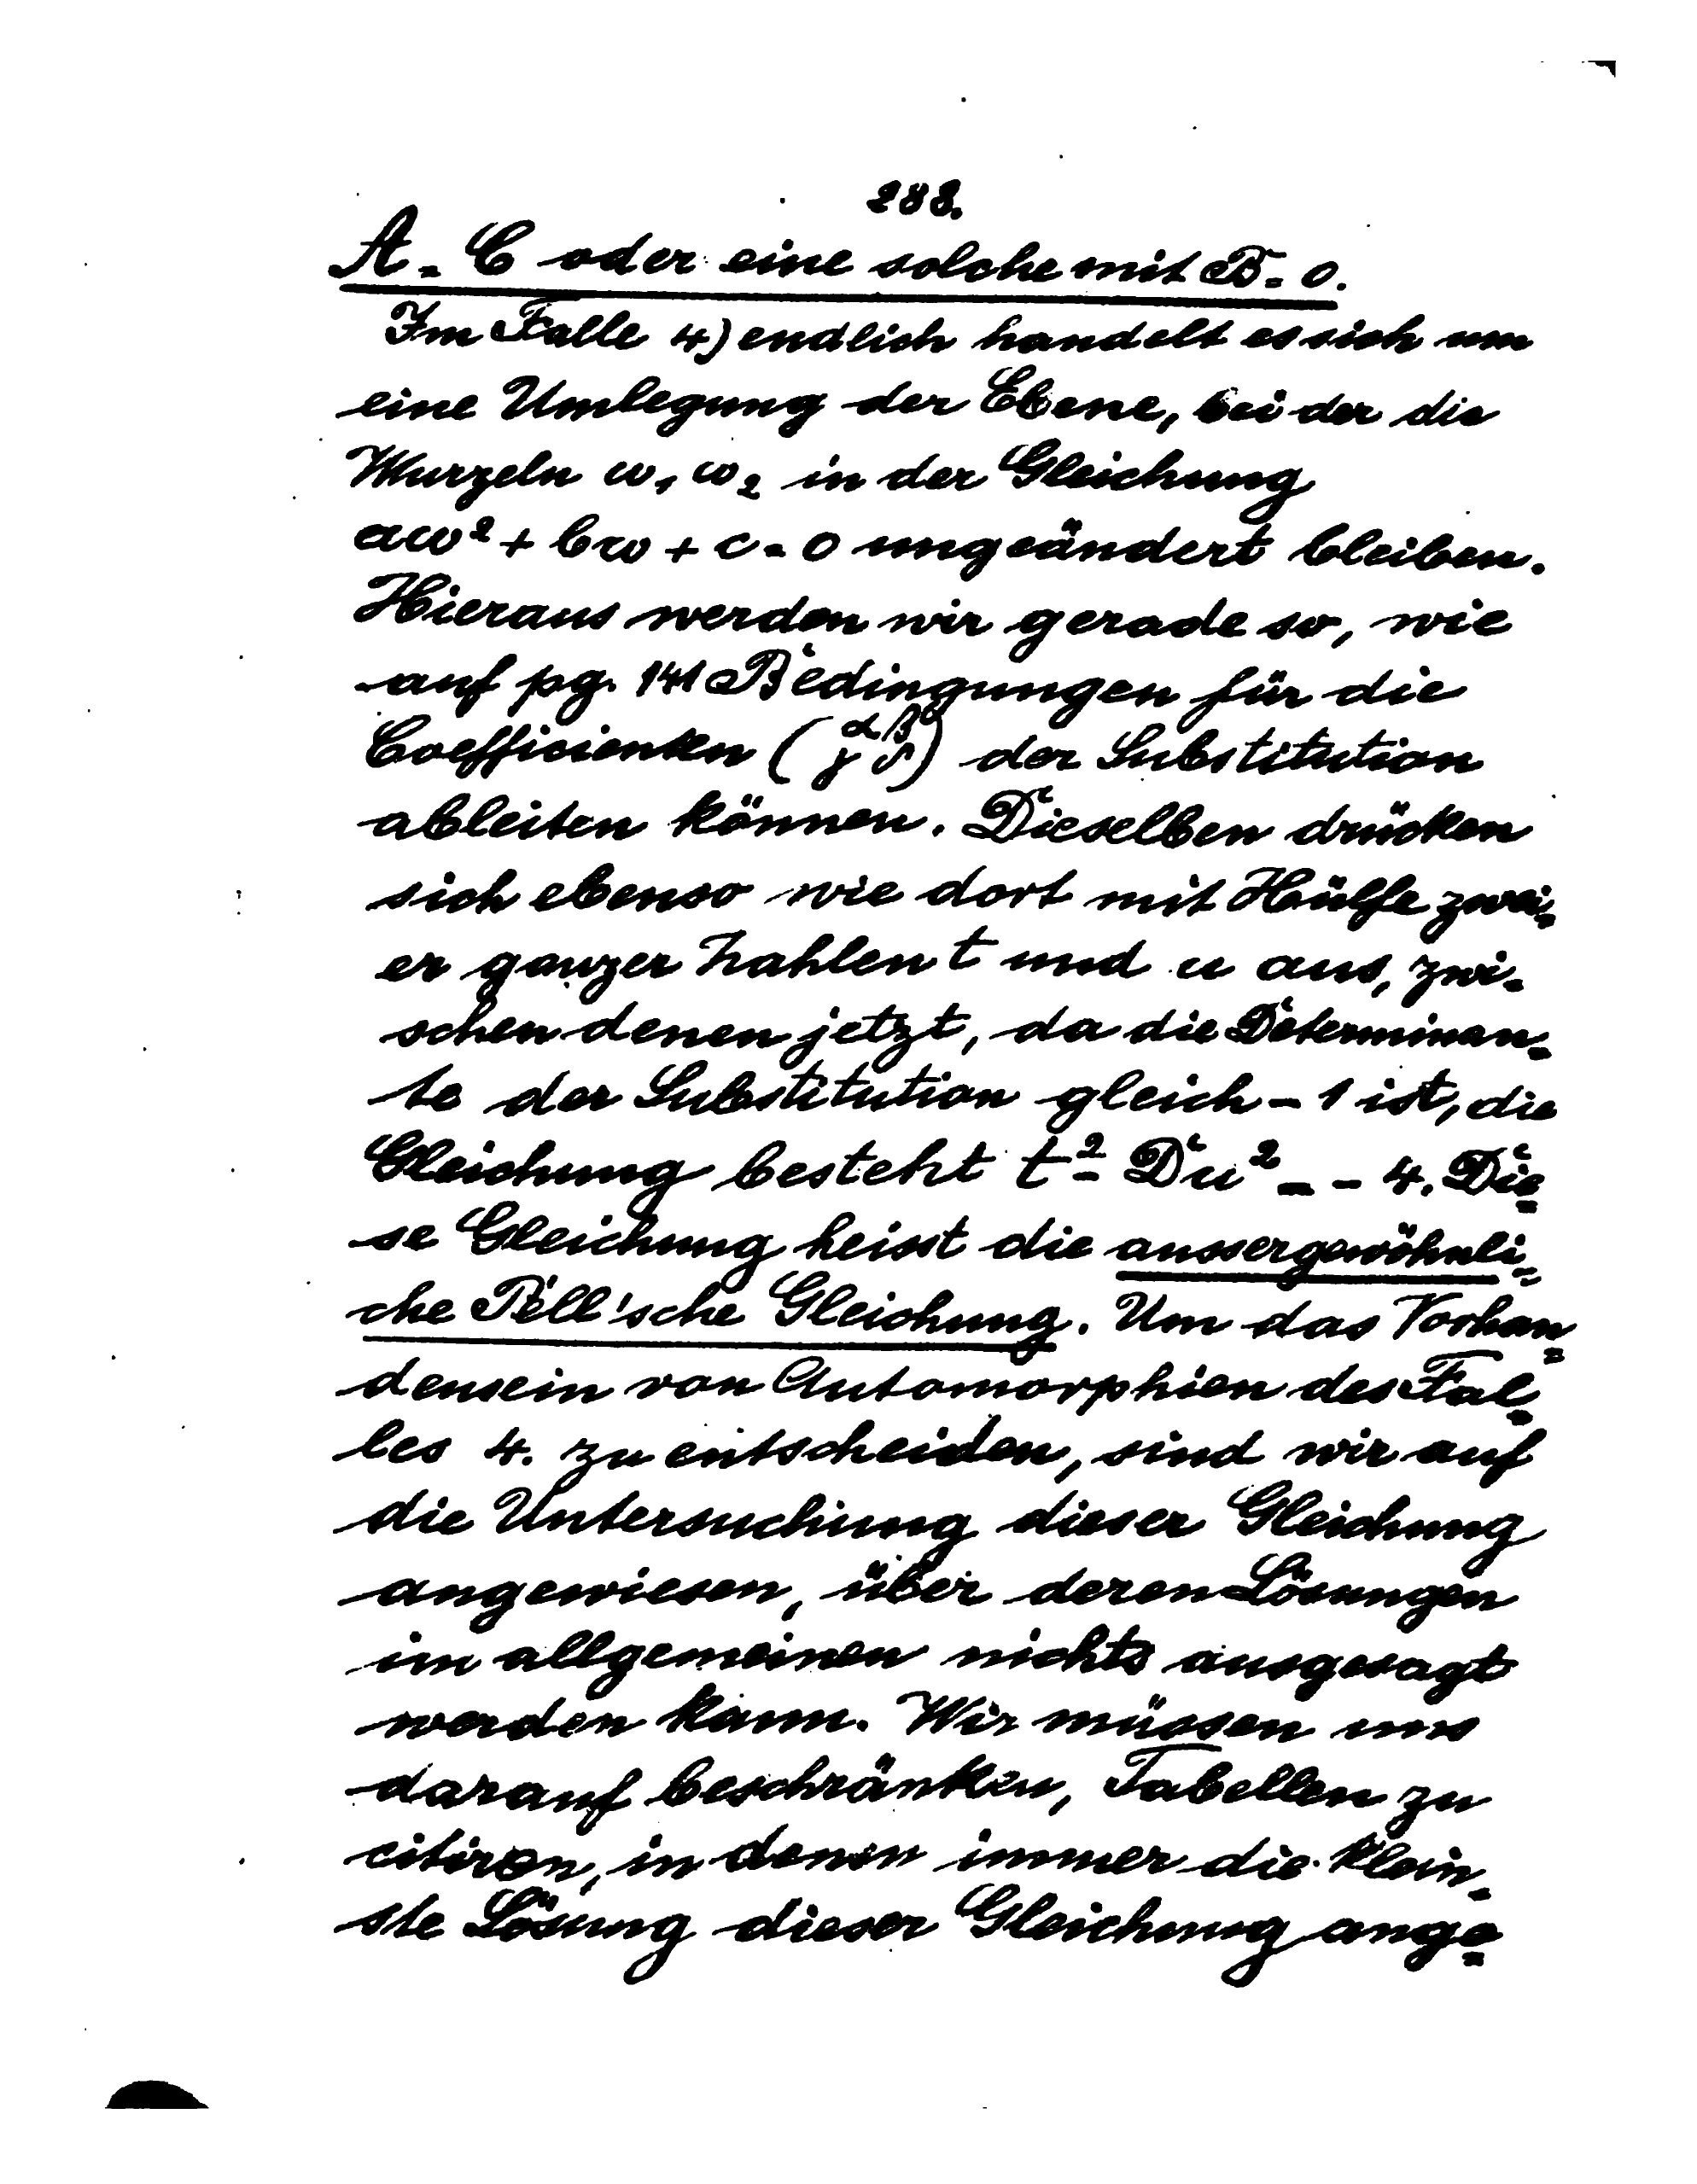 288.
A = C oder eine solche mit B = 0.
Im Falle 4) endlich handelt es sich um
eine Umlegung der Ebene, bei der die
Wurzeln ω₁ ω₂ in der Gleichung
aω² + bω + c = 0 ungeändert bleiben.
Hieraus werden wir gerade so, wie
auf pg. 141 Bedingungen für die
Coefficienten (α β γ δ) der Substitution
ableiten können. Dieselben drücken
sich ebenso wie dort mit Hülfe zwei=
er ganzer Zahlen t und u aus, zwi=
schen denen jetzt, da die Determinan=
te der Substitution gleich - 1 ist, die
Gleichung besteht t² - Du² = - 4. Die=
se Gleichung heisst die aussergewöhnli=
che Pell'sche Gleichung. Um das Vorhan=
densein von Automorphien des Fal=
les 4. zu entscheiden, sind wir auf
die Untersuchung dieser Gleichung
angewiesen, über deren Lösungen
im allgemeinen nichts ausgesagt
werden kann. Wir müssen uns
darauf beschränken, Tabellen zu
citiren, in denen immer die klein=
ste Lösung dieser Gleichung ange=